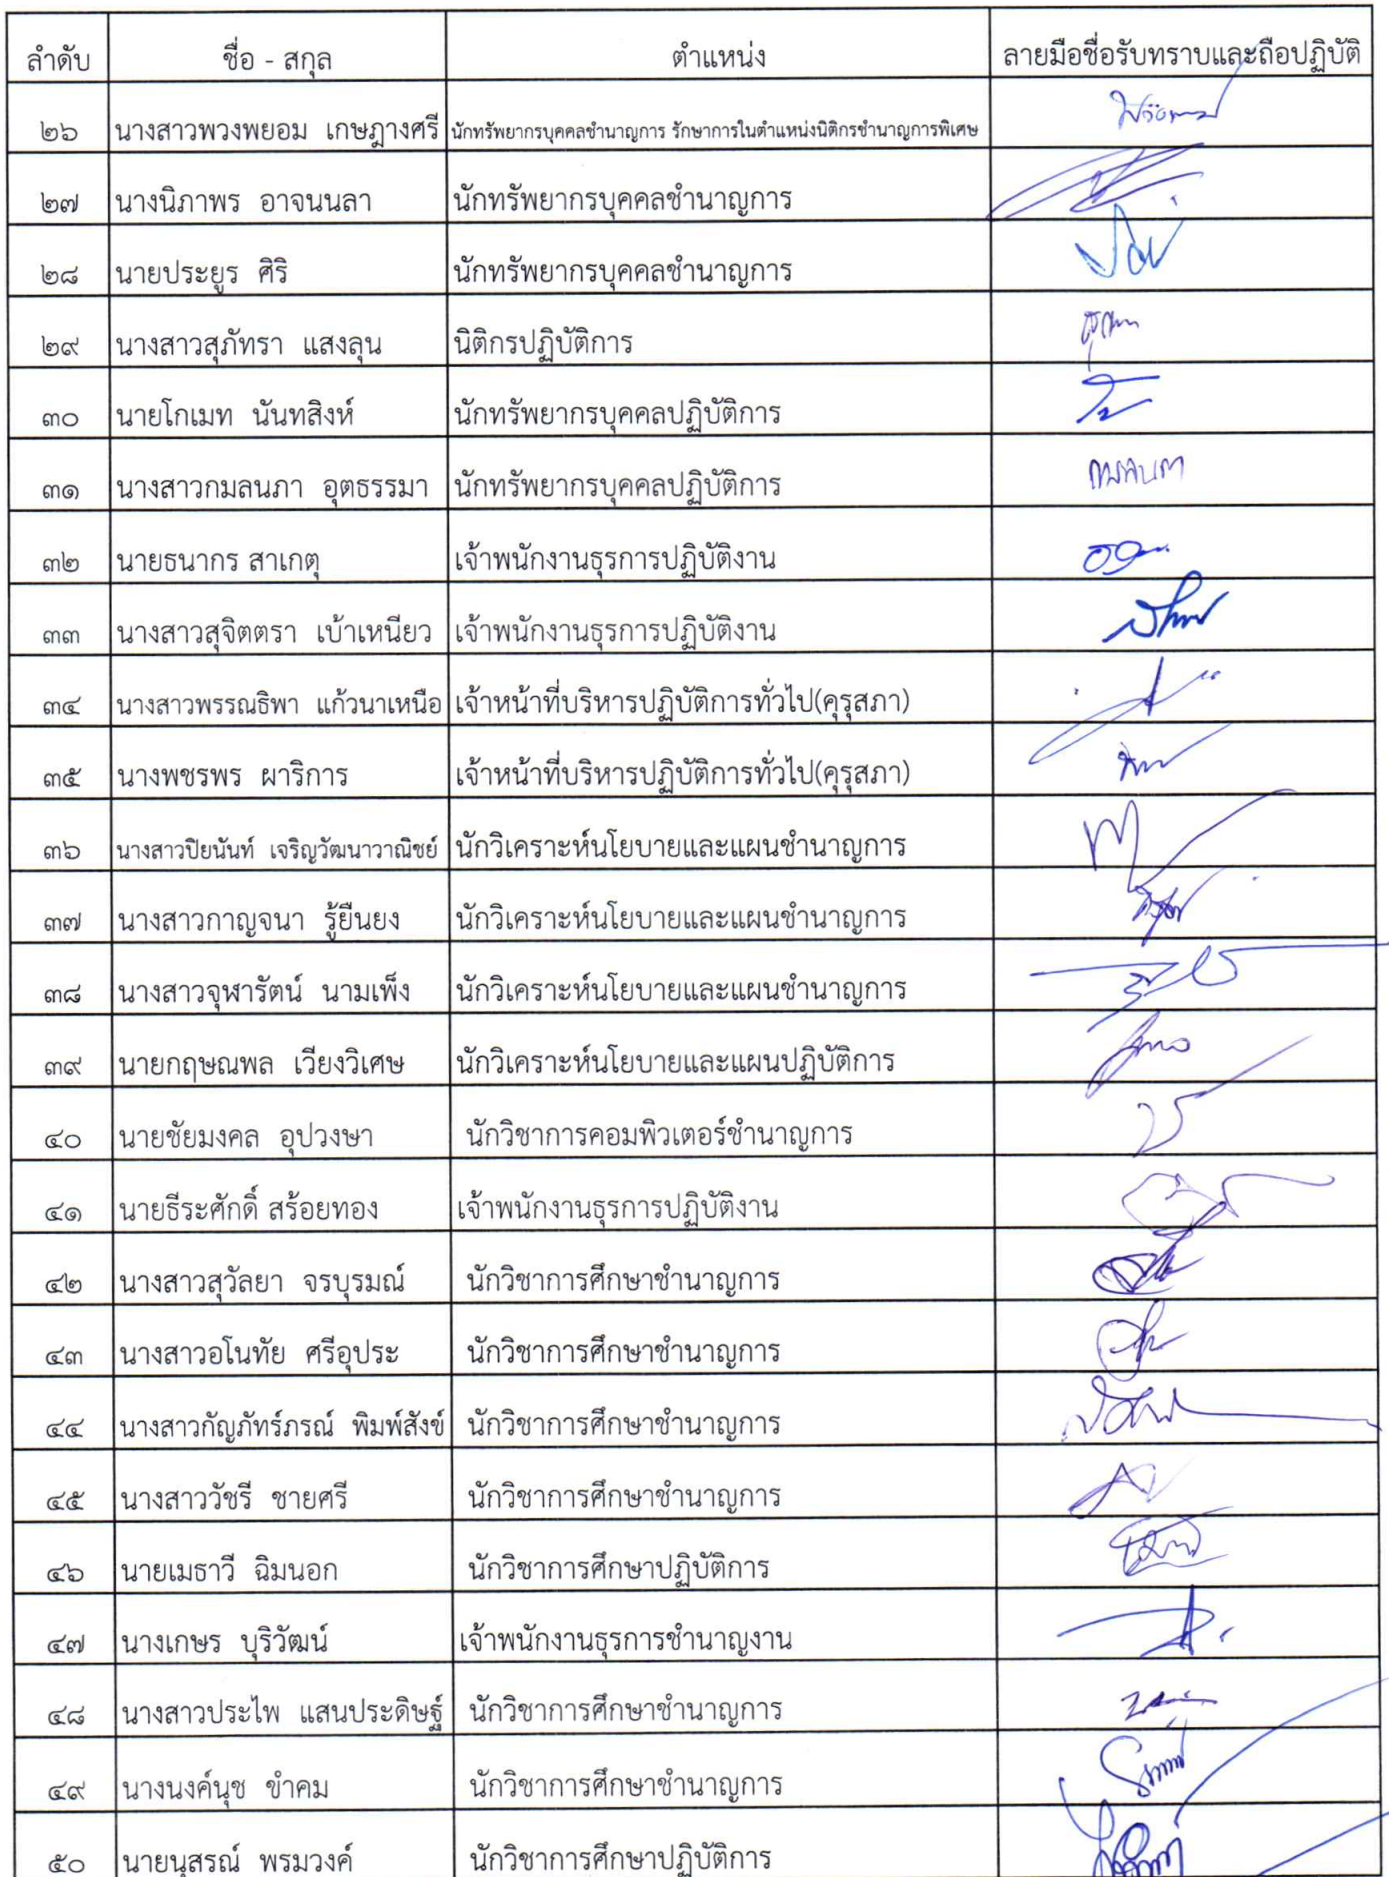 ลำดับ ชื่อ - สกุล ตำแหน่ง ลายมือชื่อรับทราบและถือปฏิบัติ
๒๖ นางสาวพวงพยอม เกษฎางศรี นักทรัพยากรบุคคลชำนาญการ รักษาการในตำแหน่งนิติกรชำนาญการพิเศษ
๒๗ นางนิภาพร อาจนนลา นักทรัพยากรบุคคลชำนาญการ
๒๘ นายประยูร ศิริ นักทรัพยากรบุคคลชำนาญการ
๒๙ นางสาวสุภัทรา แสงลุน นิติกรปฏิบัติการ
๓๐ นายโกเมท นันทสิงห์ นักทรัพยากรบุคคลปฏิบัติการ
๓๑ นางสาวกมลนภา อุตธรรมา นักทรัพยากรบุคคลปฏิบัติการ กมลนภา
๓๒ นายธนากร สาเกตุ เจ้าพนักงานธุรการปฏิบัติงาน
๓๓ นางสาวสุจิตตรา เบ้าเหนียว เจ้าพนักงานธุรการปฏิบัติงาน
๓๔ นางสาวพรรณธิพา แก้วนาเหนือ เจ้าหน้าที่บริหารปฏิบัติการทั่วไป(คุรุสภา)
๓๕ นางพชรพร ผาริการ เจ้าหน้าที่บริหารปฏิบัติการทั่วไป(คุรุสภา)
๓๖ นางสาวปิยนันท์ เจริญวัฒนาวาณิชย์ นักวิเคราะห์นโยบายและแผนชำนาญการ
๓๗ นางสาวกาญจนา รู้ยืนยง นักวิเคราะห์นโยบายและแผนชำนาญการ
๓๘ นางสาวจุฬารัตน์ นามเพ็ง นักวิเคราะห์นโยบายและแผนชำนาญการ
๓๙ นายกฤษณพล เวียงวิเศษ นักวิเคราะห์นโยบายและแผนปฏิบัติการ
๔๐ นายชัยมงคล อุปวงษา นักวิชาการคอมพิวเตอร์ชำนาญการ
๔๑ นายธีระศักดิ์ สร้อยทอง เจ้าพนักงานธุรการปฏิบัติงาน
๔๒ นางสาวสุวัลยา จรบุรมณ์ นักวิชาการศึกษาชำนาญการ
๔๓ นางสาวอโนทัย ศรีอุประ นักวิชาการศึกษาชำนาญการ
๔๔ นางสาวกัญภัทร์ภรณ์ พิมพ์สังข์ นักวิชาการศึกษาชำนาญการ
๔๕ นางสาววัชรี ชายศรี นักวิชาการศึกษาชำนาญการ
๔๖ นายเมธาวี ฉิมนอก นักวิชาการศึกษาปฏิบัติการ
๔๗ นางเกษร บุริวัฒน์ เจ้าพนักงานธุรการชำนาญงาน
๔๘ นางสาวประไพ แสนประดิษฐ์ นักวิชาการศึกษาชำนาญการ
๔๙ นางนงค์นุช ขำคม นักวิชาการศึกษาชำนาญการ
๕๐ นายนุสรณ์ พรมวงค์ นักวิชาการศึกษาปฏิบัติการ